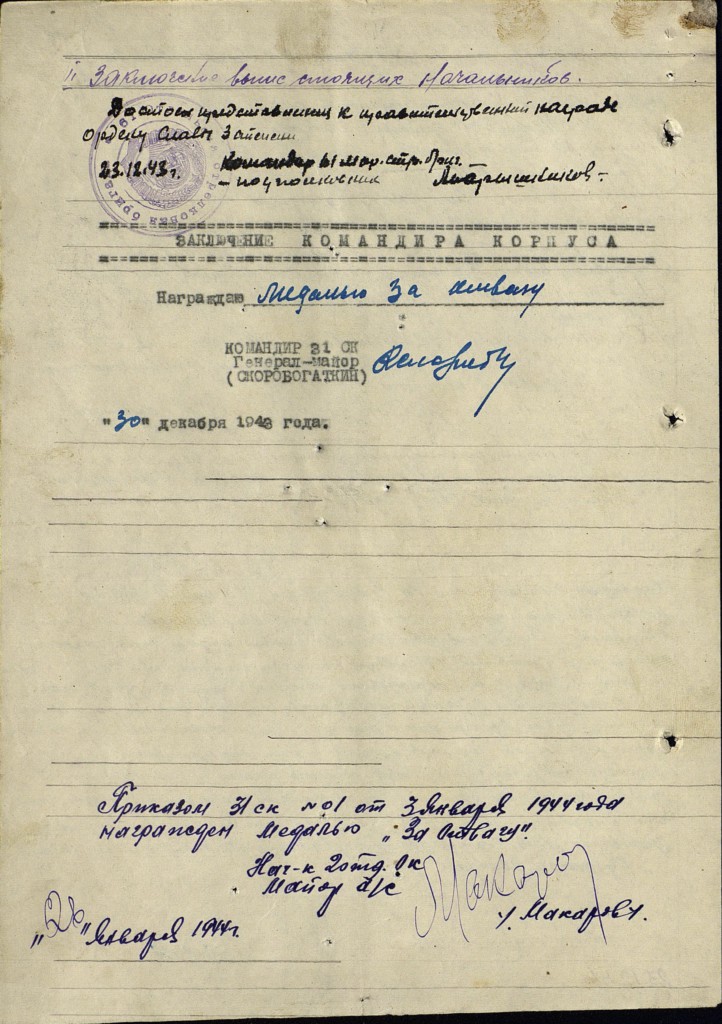 II Заключение вышестоящих Начальников.
Достоин представления к правительственной награде
Ордену Славы 3 степени
23.12.43 г. Командир 61 мор. стр. бриг.
– подполковник
ЗАКЛЮЧЕНИЕ КОМАНДИРА КОРПУСА
Награждаю Медалью За отвагу
КОМАНДИР 31 СК
Генерал-майор
(СКОРОБОГАТКИН)
"30" декабря 1943 года.
Приказом 31 ск №01 от 3 Января 1944 года
награжден Медалью „За Отвагу".
Нач-к 2 отд. О.К
Майор а/с
/. Макаров/.
„26" Января 1944 г.